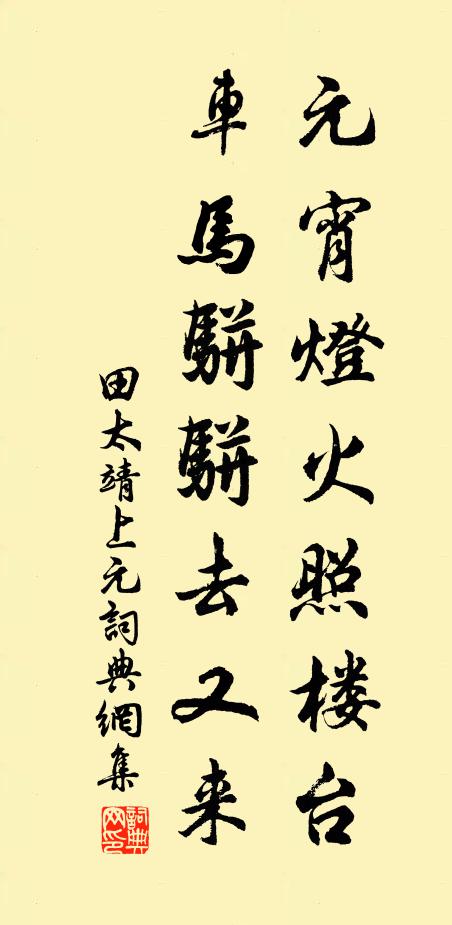 元宵燈火照楼台
車馬駢駢去又来
田太靖上元詞典網集
詞典網印